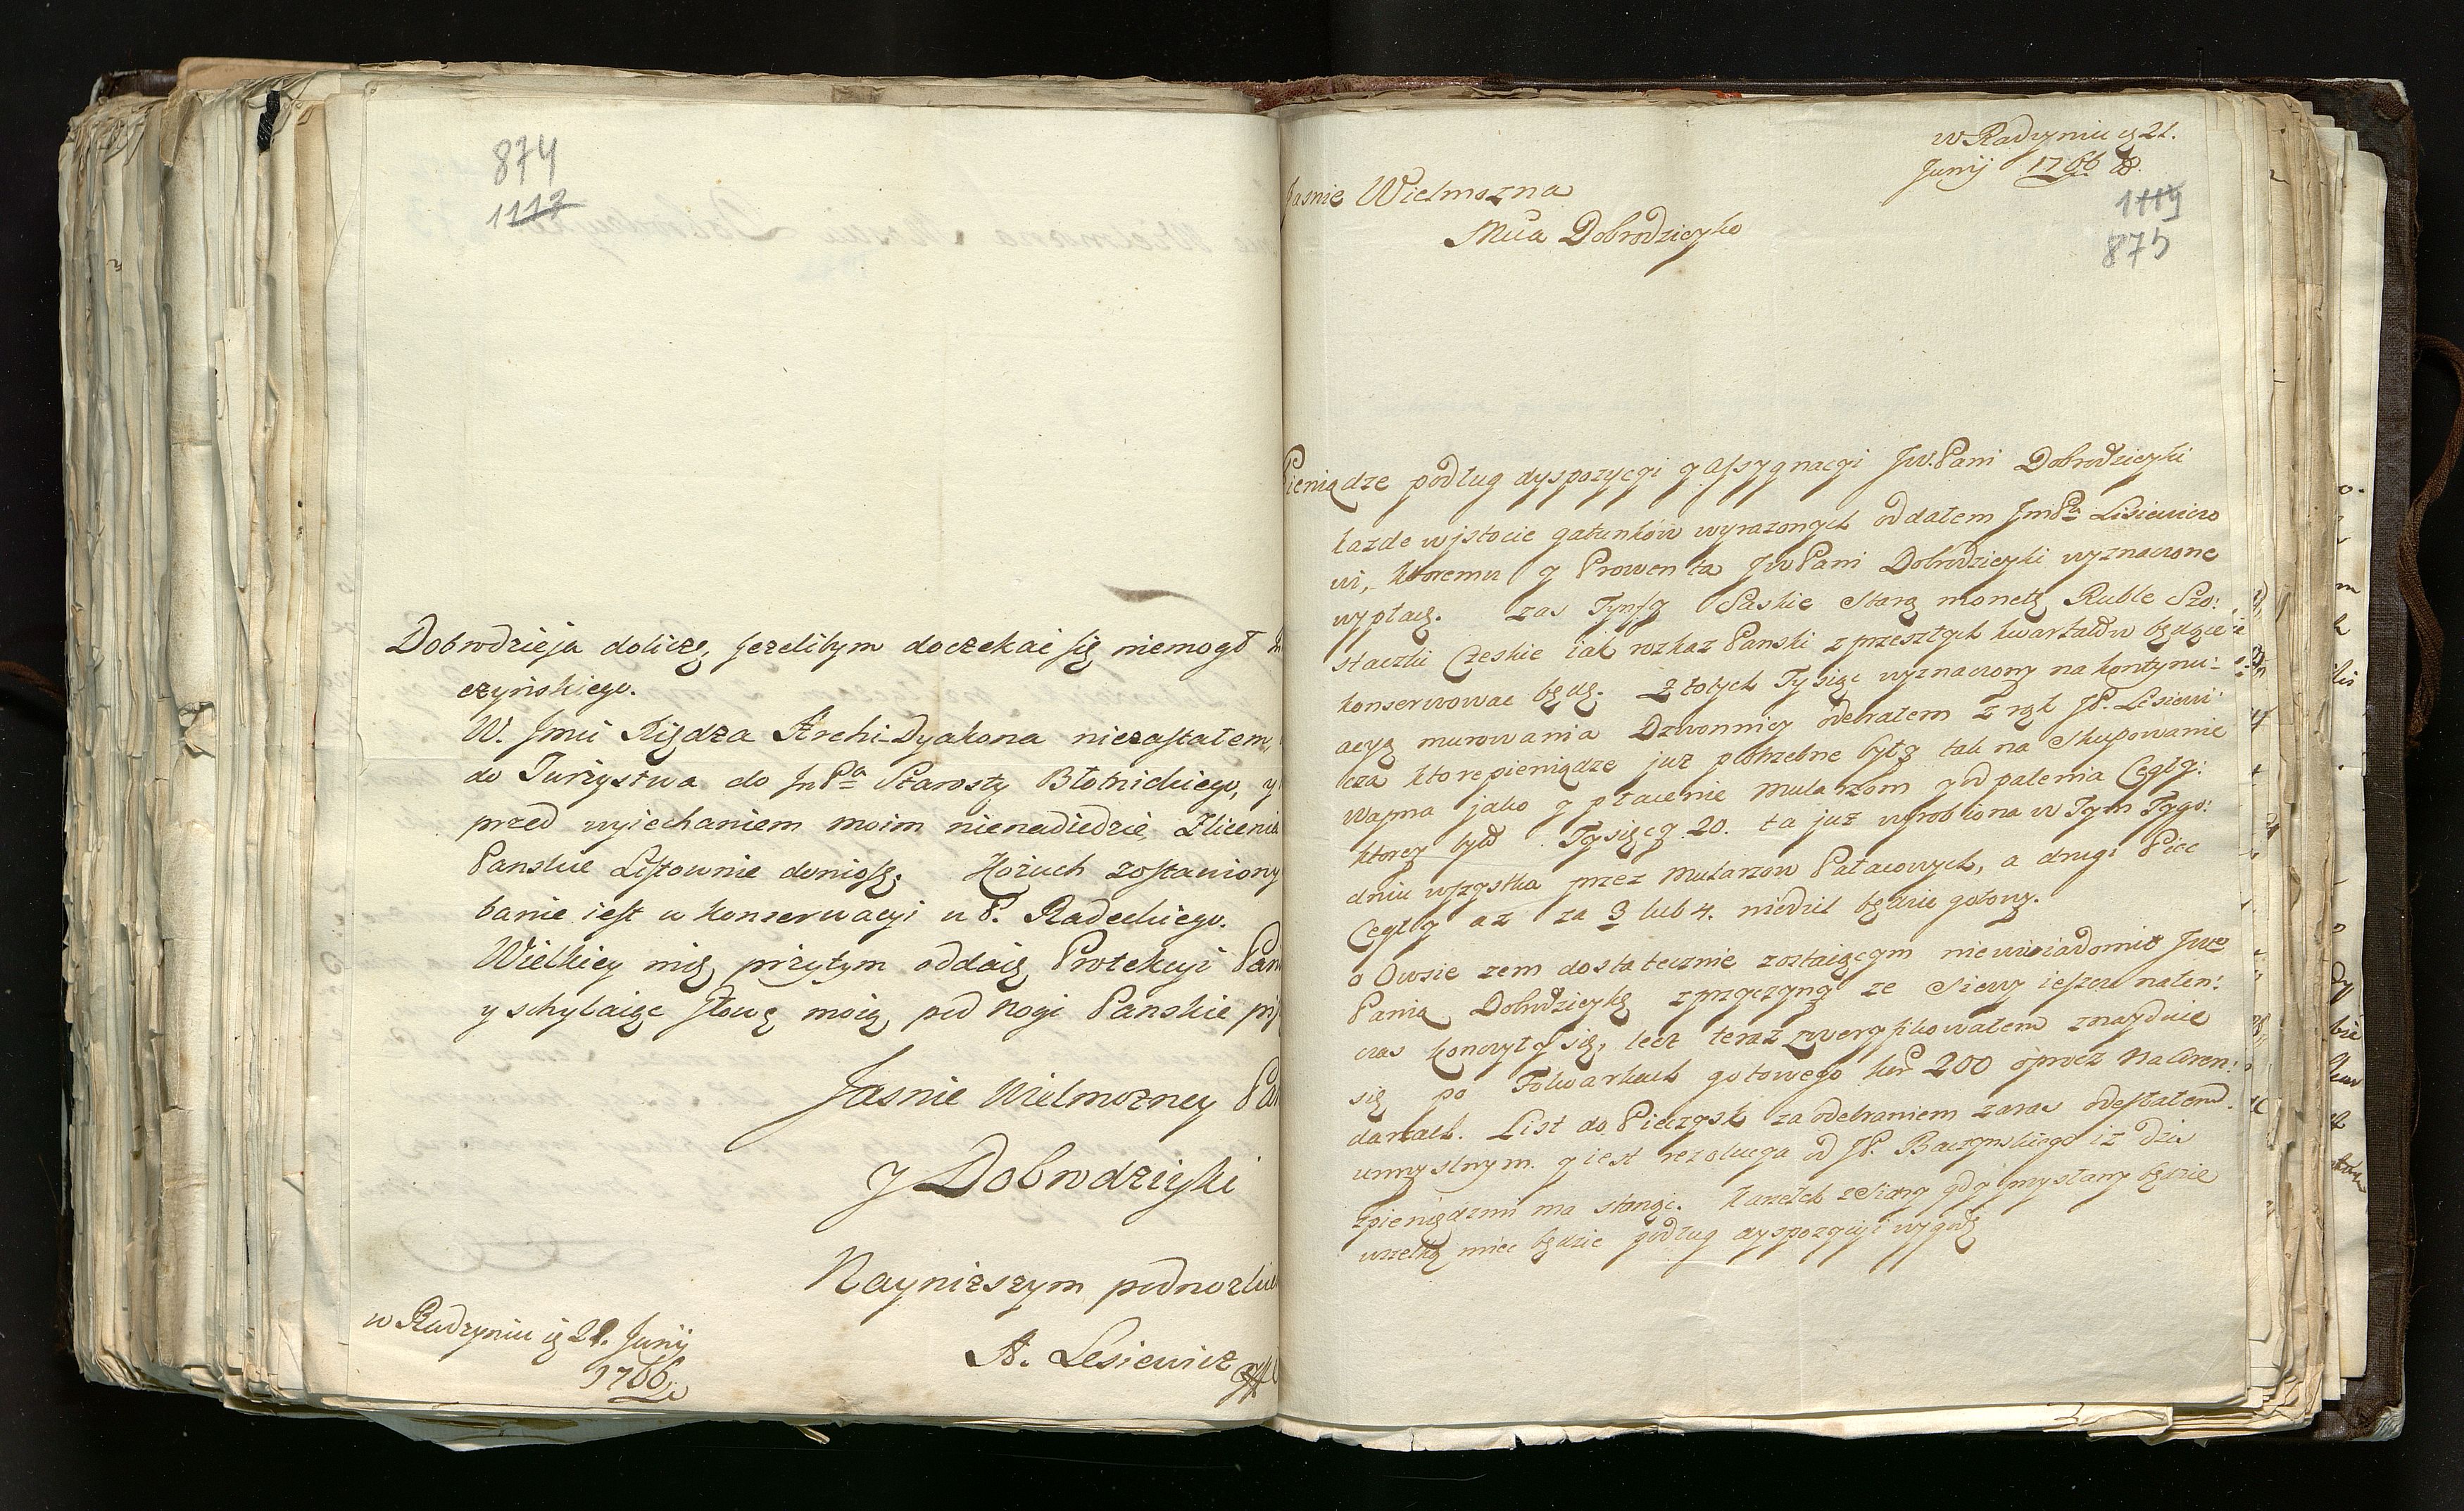 874
1117
Dobrodzieja doliczę, jezelibym doczekać się niemogł
czyńskiego.
W. Jmći Xiędza Archi Dyakona niezastałem,
do Turzystwa do JnPa Starosty Błotnickiego, y
przed wyiechaniem moim nienadiedzie, Zlicenia
Panskie Listownie doniosę. Kożuch zostawiony
banie iest w konserwacyi u P. Radeckiego.
Wielkiey mię przytym oddaię Protekcyi Pan
y schylaiąc głowę moię pod nogi Panskie pis
Jasnie Wielmozney Pa
y Dobrodzieyki
Nayniższym podnożkie
A. Lesiewicz
w Radzyniu ig 21. Junij
1766
w Radzyniu ig 21.
Junij 1766
1119
875
Jasnie Wielmozna
Mcia Dobrodzieyko
Pieniądze podług dyspozycyi y assygnacyi Jw. Pani Dobrodzieyki
kazde w jstocie gatunków wyrazonych oddałem JmPu Lisiewiczo
wi, ktoremu y Prowenta JwPani Dobrodzieyki wyznaczone
wypłacę. zas Tynfy Saskie Starą monetę Ruble Szo:
staczki Czeskie iak rozkaz Panski z przeszłych kwartałów będące
konserwowac będę. Złotych Tysiąc wyznaczony na kontynu:
acyą murowania Dzwonnicy odebrałem z rąk JP. Lesiewi
cza ktore pieniądze juz potrzebne były tak na skupowanie
wapna jako y płacenie mularzom y od palenia Cegły:
ktorey było Tysięcy 20. ta juz wyrobiona w Tym Tygo:
dniu wszystka przez Mularzow Pałacowych, a drugi Piec
Cegły az za 3 lub 4. niedziel będzie gotowy.
o Owsie zem dostatecznie zostaiącym nieuwiadomił Jwo
Panią Dobrodzieykę z przyczyny ze Siewy ieszcze naten:
czas konczyły się, lecz teraz zweryfikowałem znayduie
się po Folwarkach gotowego kor 200 oprocz na Aren:
darzach. List do Pieczysk za odebraniem zaraz odesłałem
umyslnym y iest rezolucya od JP. Baczynskiego iz dzis
z pieniędzmi ma stanąc. Karzełek z Siary gdy przysłany będzie
wszelką miec będzie podług dyspozycyi wygodę